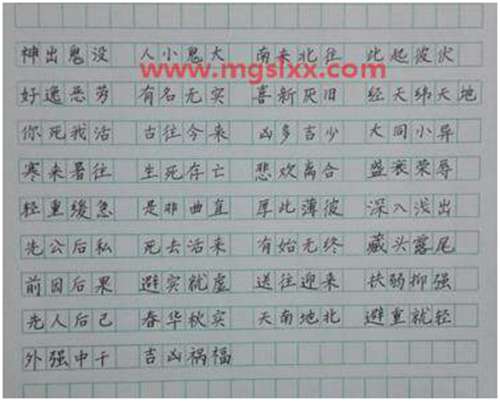 神出鬼没 人小鬼大 南来北往 此起彼伏
www.mgslxx.com
好逸恶劳 有名无实 喜新厌旧 经天纬天地
你死我活 古往今来 凶多吉少 大同小异
寒来暑往 生死存亡 悲欢离合 盛衰荣辱
轻重缓急 是非曲直 厚此薄彼 深入浅出
先公后私 死去活来 有始无终 藏头露尾
前因后果 避实就虚 送往迎来 扶弱抑强
先人后己 春华秋实 天南地北 避重就轻
外强中干 吉凶祸福